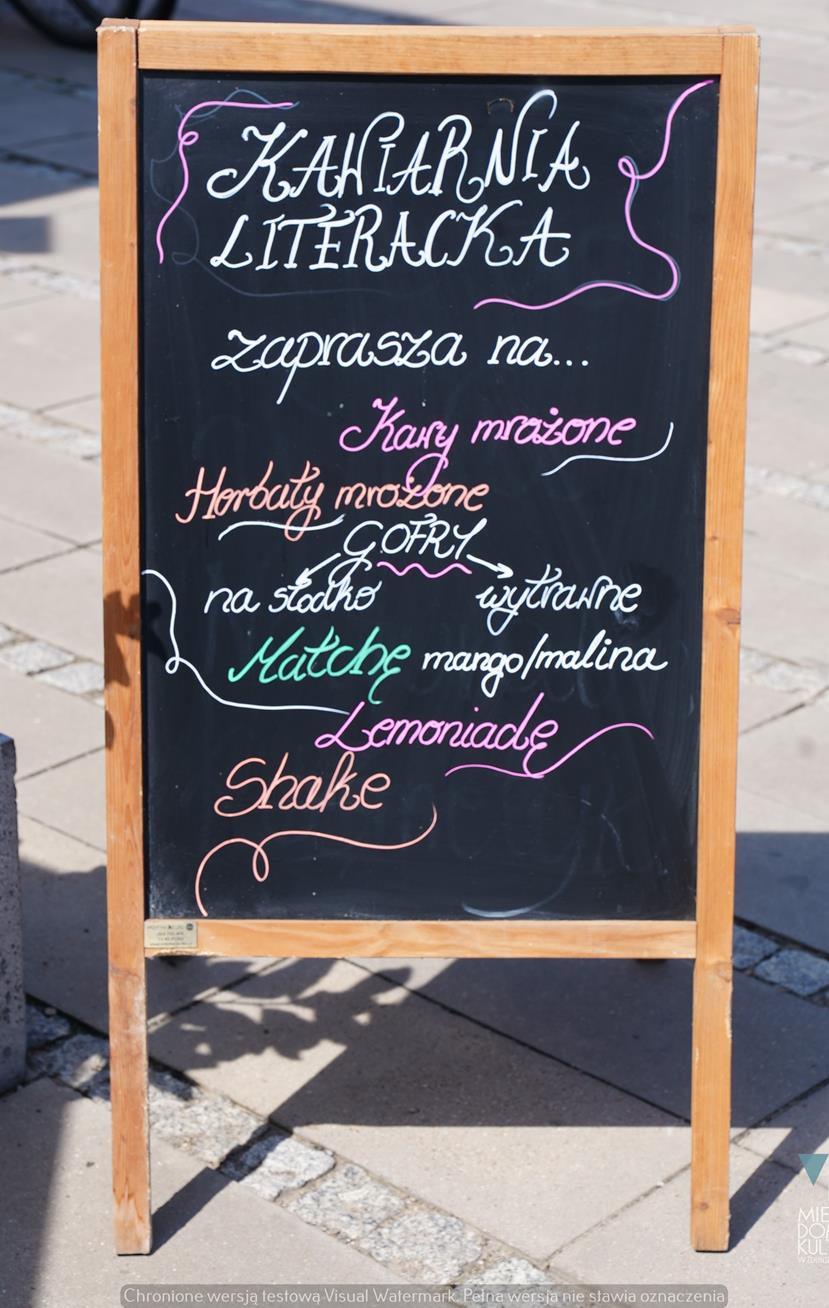 KAWIARNIA
LITERACKA
zaprasza na...
Kawy mrożone
Herbaty mrożone
GOFRY
na słodko wytrawne
Matchę mango/malina
Lemoniadę
Shake
Chronione wersją testową Visual Watermark. Pełna wersja nie stawia oznaczenia